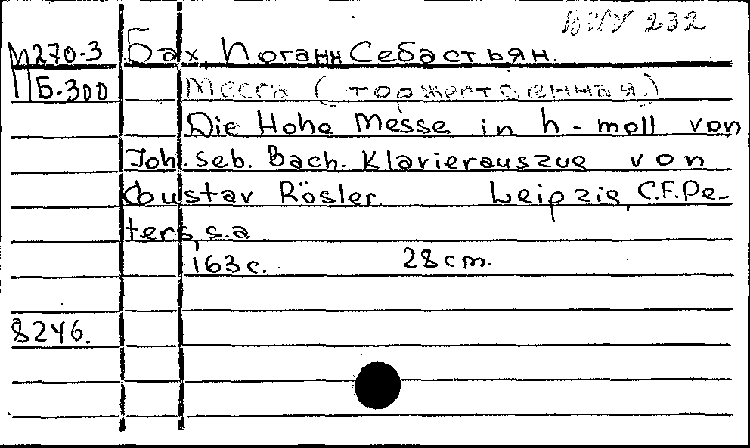 232
М270-3 Бах, Иоганн Себастьян.
Б-300 Месса (торжественная)
Die Hohe Messe in h-moll von
Joh. Seb. Bach. Klavierauszug von
Gustav Rösler. Leipzig, C.F.Pe-
ters, s.a.
163 с. 28 cm.
8246.